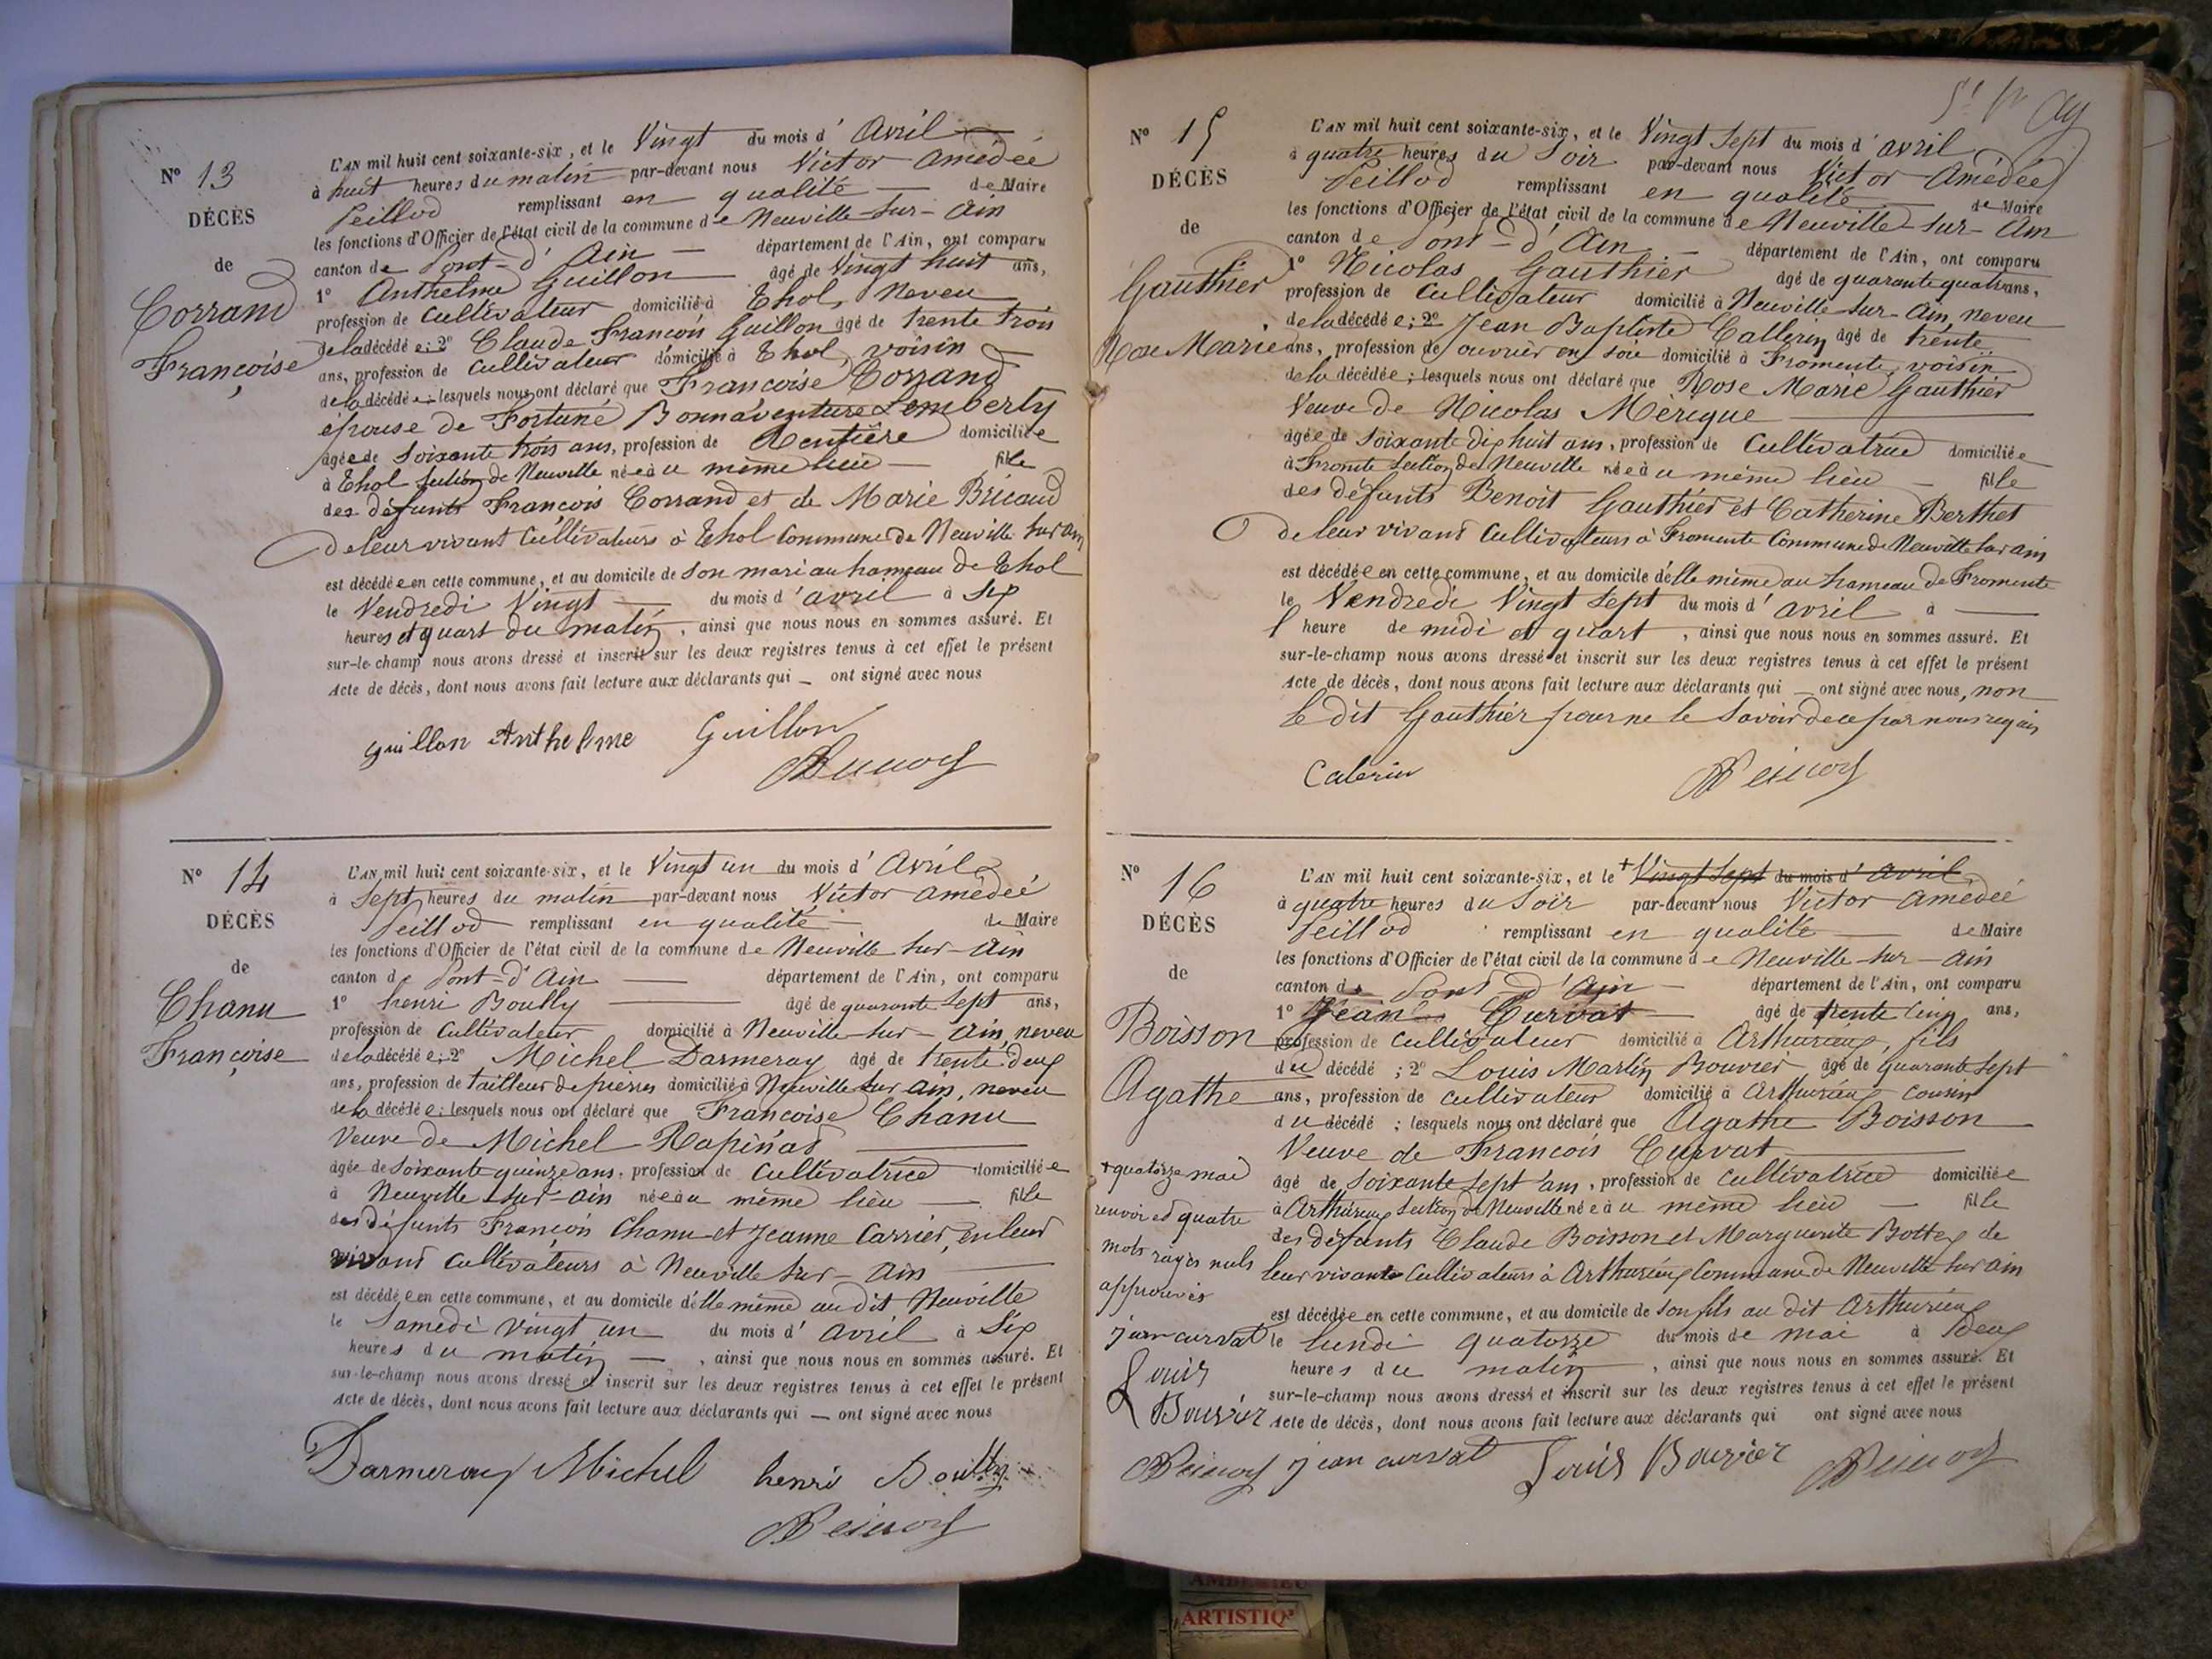 N° 13
DÉCÈS
de
Corrand
Françoise
L'AN mil huit cent soixante-six, et le Vingt du mois d'Avril
à huit heures du matin par-devant nous Victor Amédée
Peillod remplissant en qualité de Maire
les fonctions d'Officier de l'état civil de la commune de Neuville-sur-Ain
canton de Pont-d'Ain département de l'Ain, ont comparu
1° Anthelme Guillon âgé de Vingt huit ans,
profession de Cultivateur domicilié à Thol, Neveu
de la décédée; 2° Claude François Guillon âgé de trente trois
ans, profession de Cultivateur domicilié à Thol, voisin
de la décédée; lesquels nous ont déclaré que Françoise Corrand
épouse de Fortuné Bonnaventure Lemberty
âgée de Soixante trois ans, profession de Rentière domiciliée
à Thol section de Neuville née au même lieu fille
des défunts François Corrand et de Marie Bricaud
de leur vivant Cultivateurs à Thol Commune de Neuville sur Ain
est décédée en cette commune, et au domicile de son mari au hameau de Thol
le Vendredi Vingt du mois d'avril à Six
heures et quart du matin, ainsi que nous nous en sommes assuré. Et
sur-le-champ nous avons dressé et inscrit sur les deux registres tenus à cet effet le présent
Acte de décès, dont nous avons fait lecture aux déclarants qui _ ont signé avec nous
guillon Anthelme Guillon
N° 14
DÉCÈS
de
Chanu
Françoise
L'AN mil huit cent soixante-six, et le Vingt un du mois d'Avril
à Sept heures du matin par-devant nous Victor Amédée
Peillod remplissant en qualité de Maire
les fonctions d'Officier de l'état civil de la commune de Neuville sur-Ain
canton de Pont-d'Ain département de l'Ain, ont comparu
1° henri Boully âgé de quarante sept ans,
profession de Cultivateur domicilié à Neuville-sur-Ain, neveu
de la décédée; 2° Michel Darmeray âgé de trente deux
ans, profession de tailleur de pierres domicilié à Neuville sur Ain, neveu
de la décédée; lesquels nous ont déclaré que Françoise Chanu
Veuve de Michel Rapinad
âgée de Soixante quinze ans, profession de Cultivatrice domiciliée
à Neuville sur-ain née au même lieu fille
des défunts François Chanu et Jeanne Carrier, en leur
vivant Cultivateurs à Neuville sur-Ain
est décédée en cette commune, et au domicile d'elle même au dit Neuville
le Samedi Vingt un du mois d'Avril à Six
heures du matin, ainsi que nous nous en sommes assuré. Et
sur-le-champ nous avons dressé et inscrit sur les deux registres tenus à cet effet le présent
Acte de décès, dont nous avons fait lecture aux déclarants qui _ ont signé avec nous
Darmeray Michel henri Boully
N° 15
DÉCÈS
de
Gauthier
Rose Marie
L'AN mil huit cent soixante-six, et le Vingt Sept du mois d'avril
à quatre heures du Soir par-devant nous Victor Amédée
Peillod remplissant en qualité de Maire
les fonctions d'Officier de l'état civil de la commune de Neuville-sur-Ain
canton de Pont-d'Ain département de l'Ain, ont comparu
1° Nicolas Gauthier âgé de quarante quatre ans,
profession de Cultivateur domicilié à Neuville-sur-Ain, neveu
de la décédée; 2° Jean Baptiste Callerin âgé de trente
ans, profession de ouvrier en soie domicilié à Fromente, voisin
de la décédée; lesquels nous ont déclaré que Rose Marie Gauthier
Veuve de Nicolas Mérique
âgée de Soixante dix huit ans, profession de Cultivatrice domiciliée
à Fromte Section de Neuville née au même lieu fille
des défunts Benoit Gauthier et Catherine Berthet
de leur vivant Cultivateurs à Fromente Commune de Neuville sur ain
est décédée en cette commune, et au domicile d'elle même au hameau de Fromente
le Vendredi Vingt Sept du mois d'avril à
l'heure de midi et quart, ainsi que nous nous en sommes assuré. Et
sur-le-champ nous avons dressé et inscrit sur les deux registres tenus à cet effet le présent
Acte de décès, dont nous avons fait lecture aux déclarants qui _ ont signé avec nous, non
le dit Gauthier pour ne le savoir de ce par nous requis
Calerin
N° 16
DÉCÈS
de
Boisson
Agathe
L'AN mil huit cent soixante-six, et le + Vingt Sept du mois d'avril
à quatre heures du Soir par-devant nous Victor Amédée
Peillod remplissant en qualité de Maire
les fonctions d'Officier de l'état civil de la commune de Neuville-sur-Ain
canton de Pont d'Ain département de l'Ain, ont comparu
1° Jean Curvat âgé de trente cinq ans,
profession de Cultivateur domicilié à Arthurieux, fils
du décédé; 2° Louis Martin Bouvier âgé de quarante sept
ans, profession de cultivateur domicilié à Arthurieux Cousin
du décédé; lesquels nous ont déclaré que Agathe Boisson
Veuve de François Curvat
âgé de Soixante Sept ans, profession de Cultivatrice domiciliée
à Arthurieux Section de Neuville née au même lieu fille
des défunts Claude Boisson et Marguerite Bottex de
leur vivant Cultivateurs à Arthurieux Commune de Neuville sur ain
est décédée en cette commune, et au domicile de son fils au dit Arthurieux
le lundi quatorze du mois de mai à Deux
heures du matin, ainsi que nous nous en sommes assuré. Et
sur-le-champ nous avons dressé et inscrit sur les deux registres tenus à cet effet le présent
Acte de décès, dont nous avons fait lecture aux déclarants qui ont signé avec nous
+ quatorze mai
renvoi et quatre
mots rayés nuls
approuvés
jean curvat
Louis
Bouvier
jean curvat Louis Bouvier
ARTISTIQ